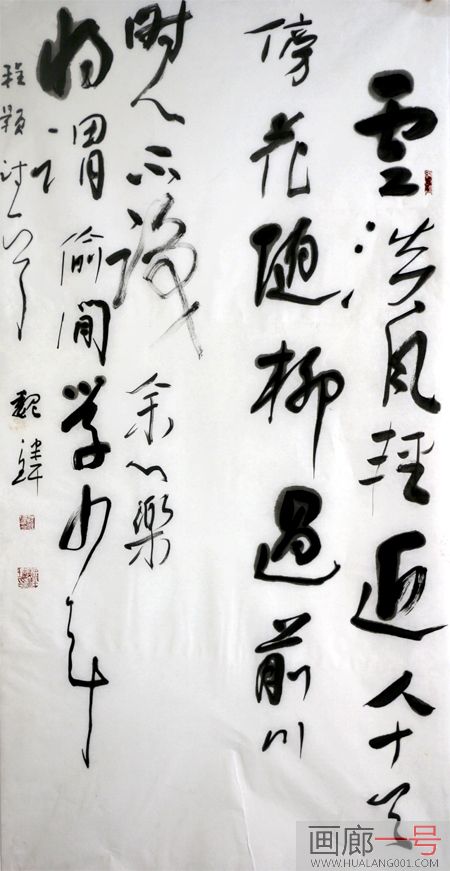 雲淡风輕近午天
傍花随柳過前川
時人不識余心樂
将謂偷闲學少年
程颢诗一首 魏
画廊一号
WWW.HUALANG001.COM